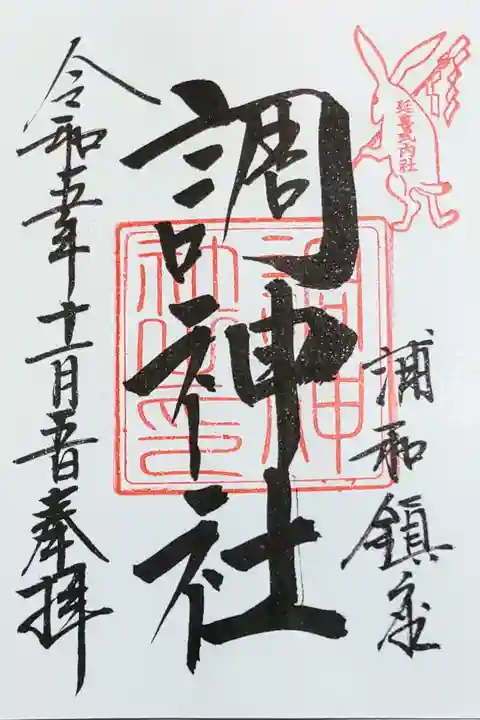 延喜式内社
浦和鎮座
調神社
調神社之印
令和五年十一月五日奉拝